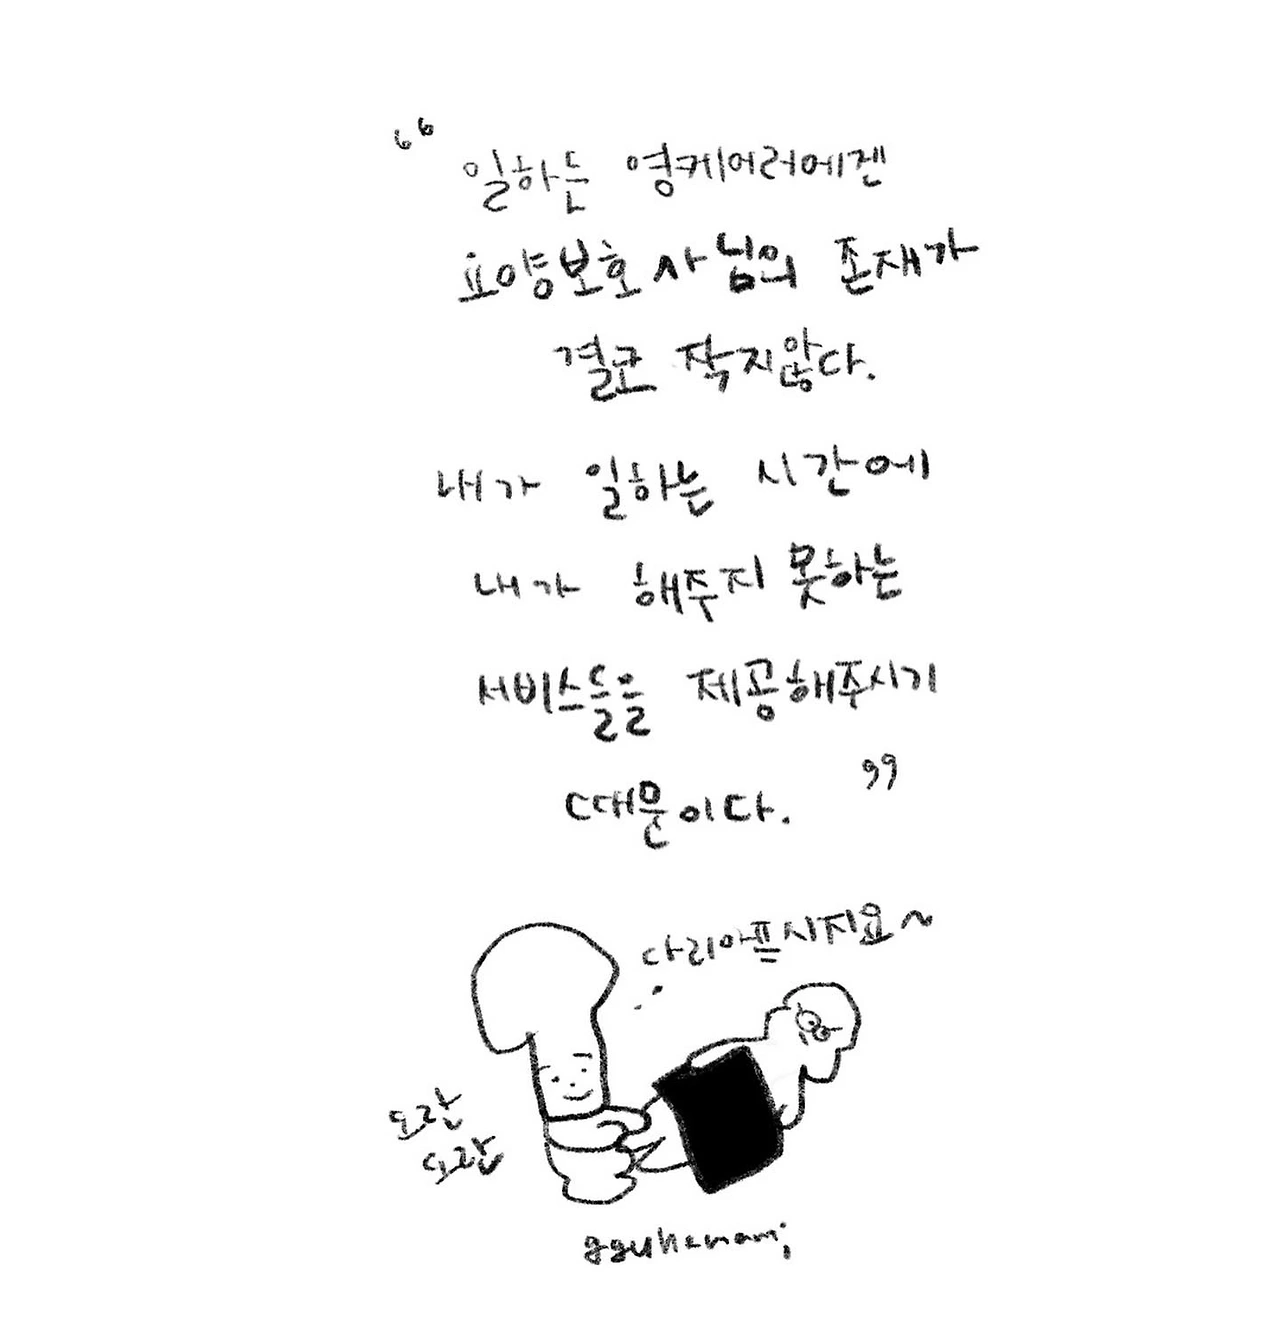 “ 일하는 영케어러에겐
요양보호사님의 존재가
결코 작지않다.
내가 일하는 시간에
내가 해주지 못하는
서비스들을 제공해주시기
때문이다. ”
다리아프시지요~
도란
도란